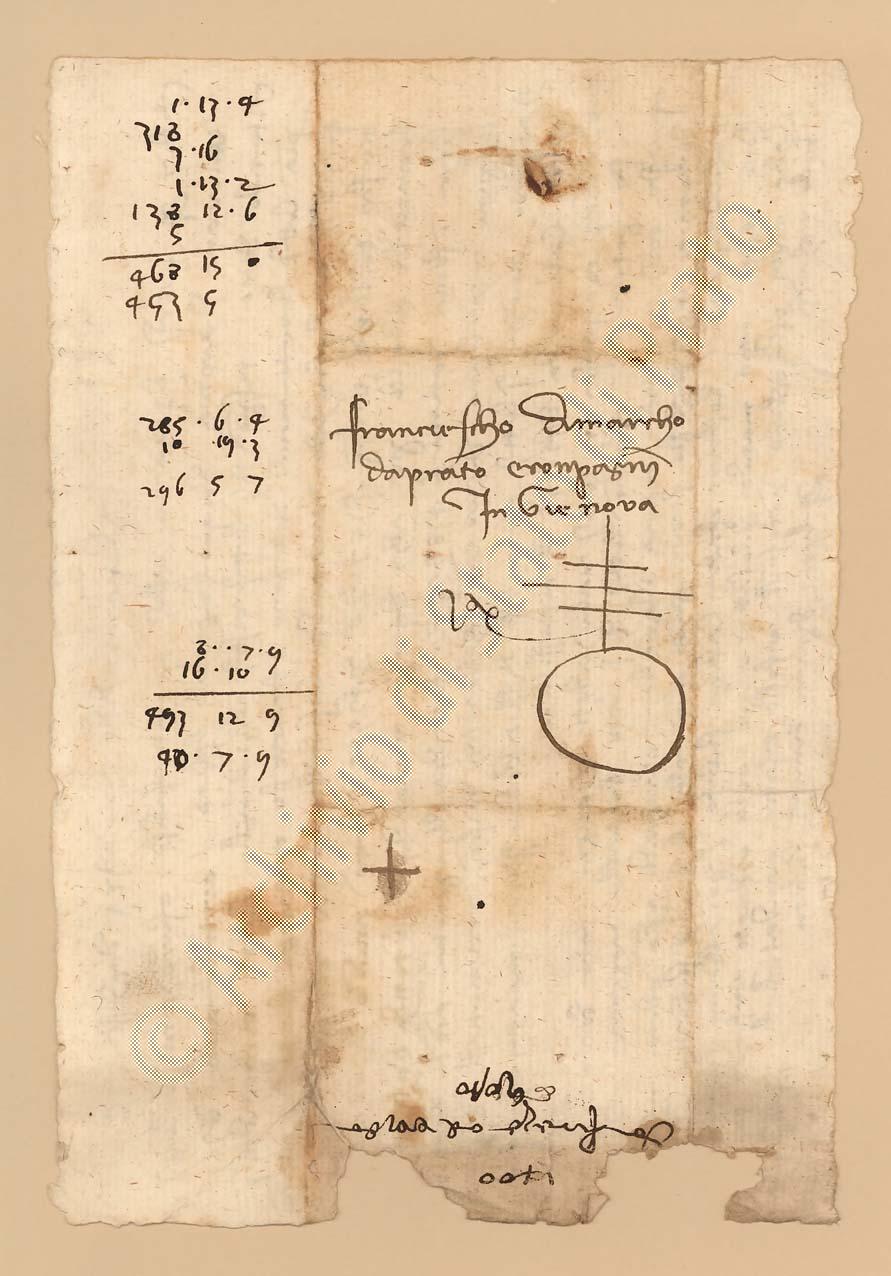 1 · 13 · 4
318
7 · 16
1 · 13 · 2
138 12 · 6
5
468 15 •
453 5
285 · 6 · 4
10 · 19 · 3
296 5 7
8 · · 7 · 9
16 · 10
493 12 9
7 · 9
Franciescho Dimarcho
daprato e conpagni
In Gienova
1400
© Archivio di Stato di Prato